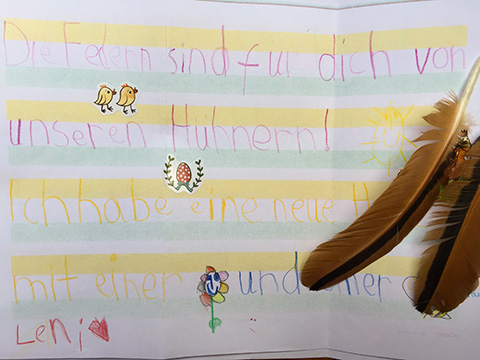 Die Federn sind für dich von
unseren Hühnern!
Ich habe eine neue H
mit einer und einer
Leni